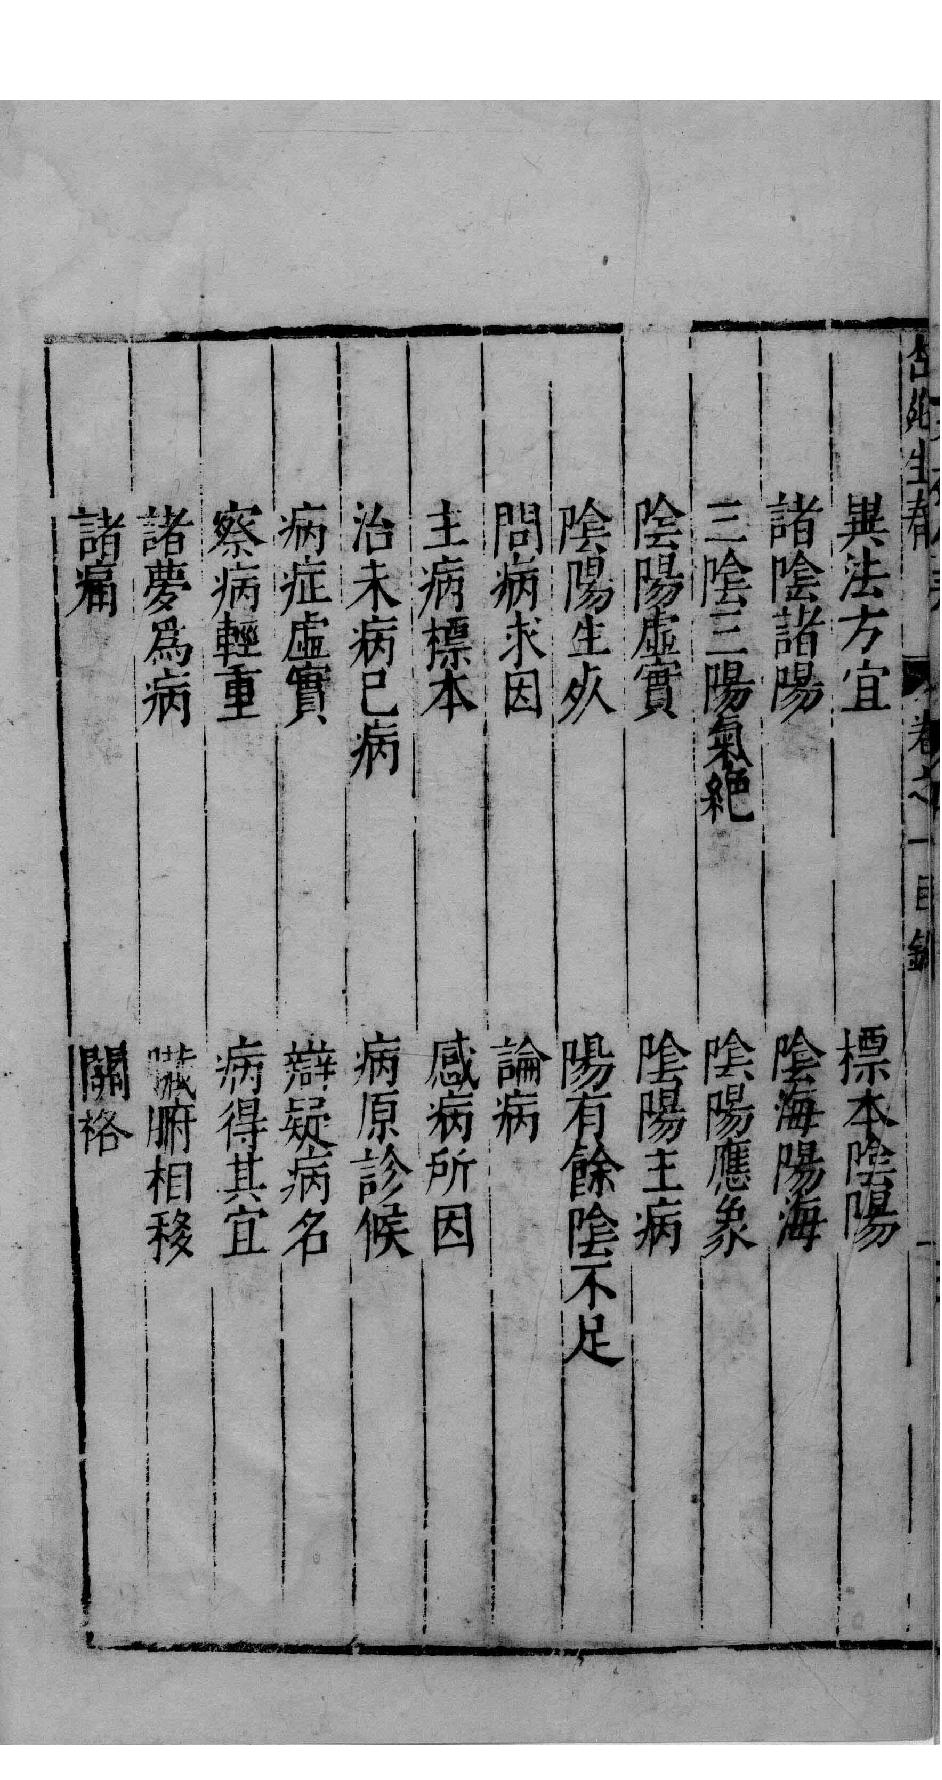 卷之一目錄
異法方宜　標本陰陽
諸陰諸陽　陰海陽海
三陰三陽氣絕　陰陽應象
陰陽虛實　陰陽主病
陰陽生死　陽有餘陰不足
問病求因　論病
主病標本　感病所因
治未病已病　病原診候
病症虛實　辯疑病名
察病輕重　病得其宜
諸夢爲病　臓腑相移
諸痛　關格